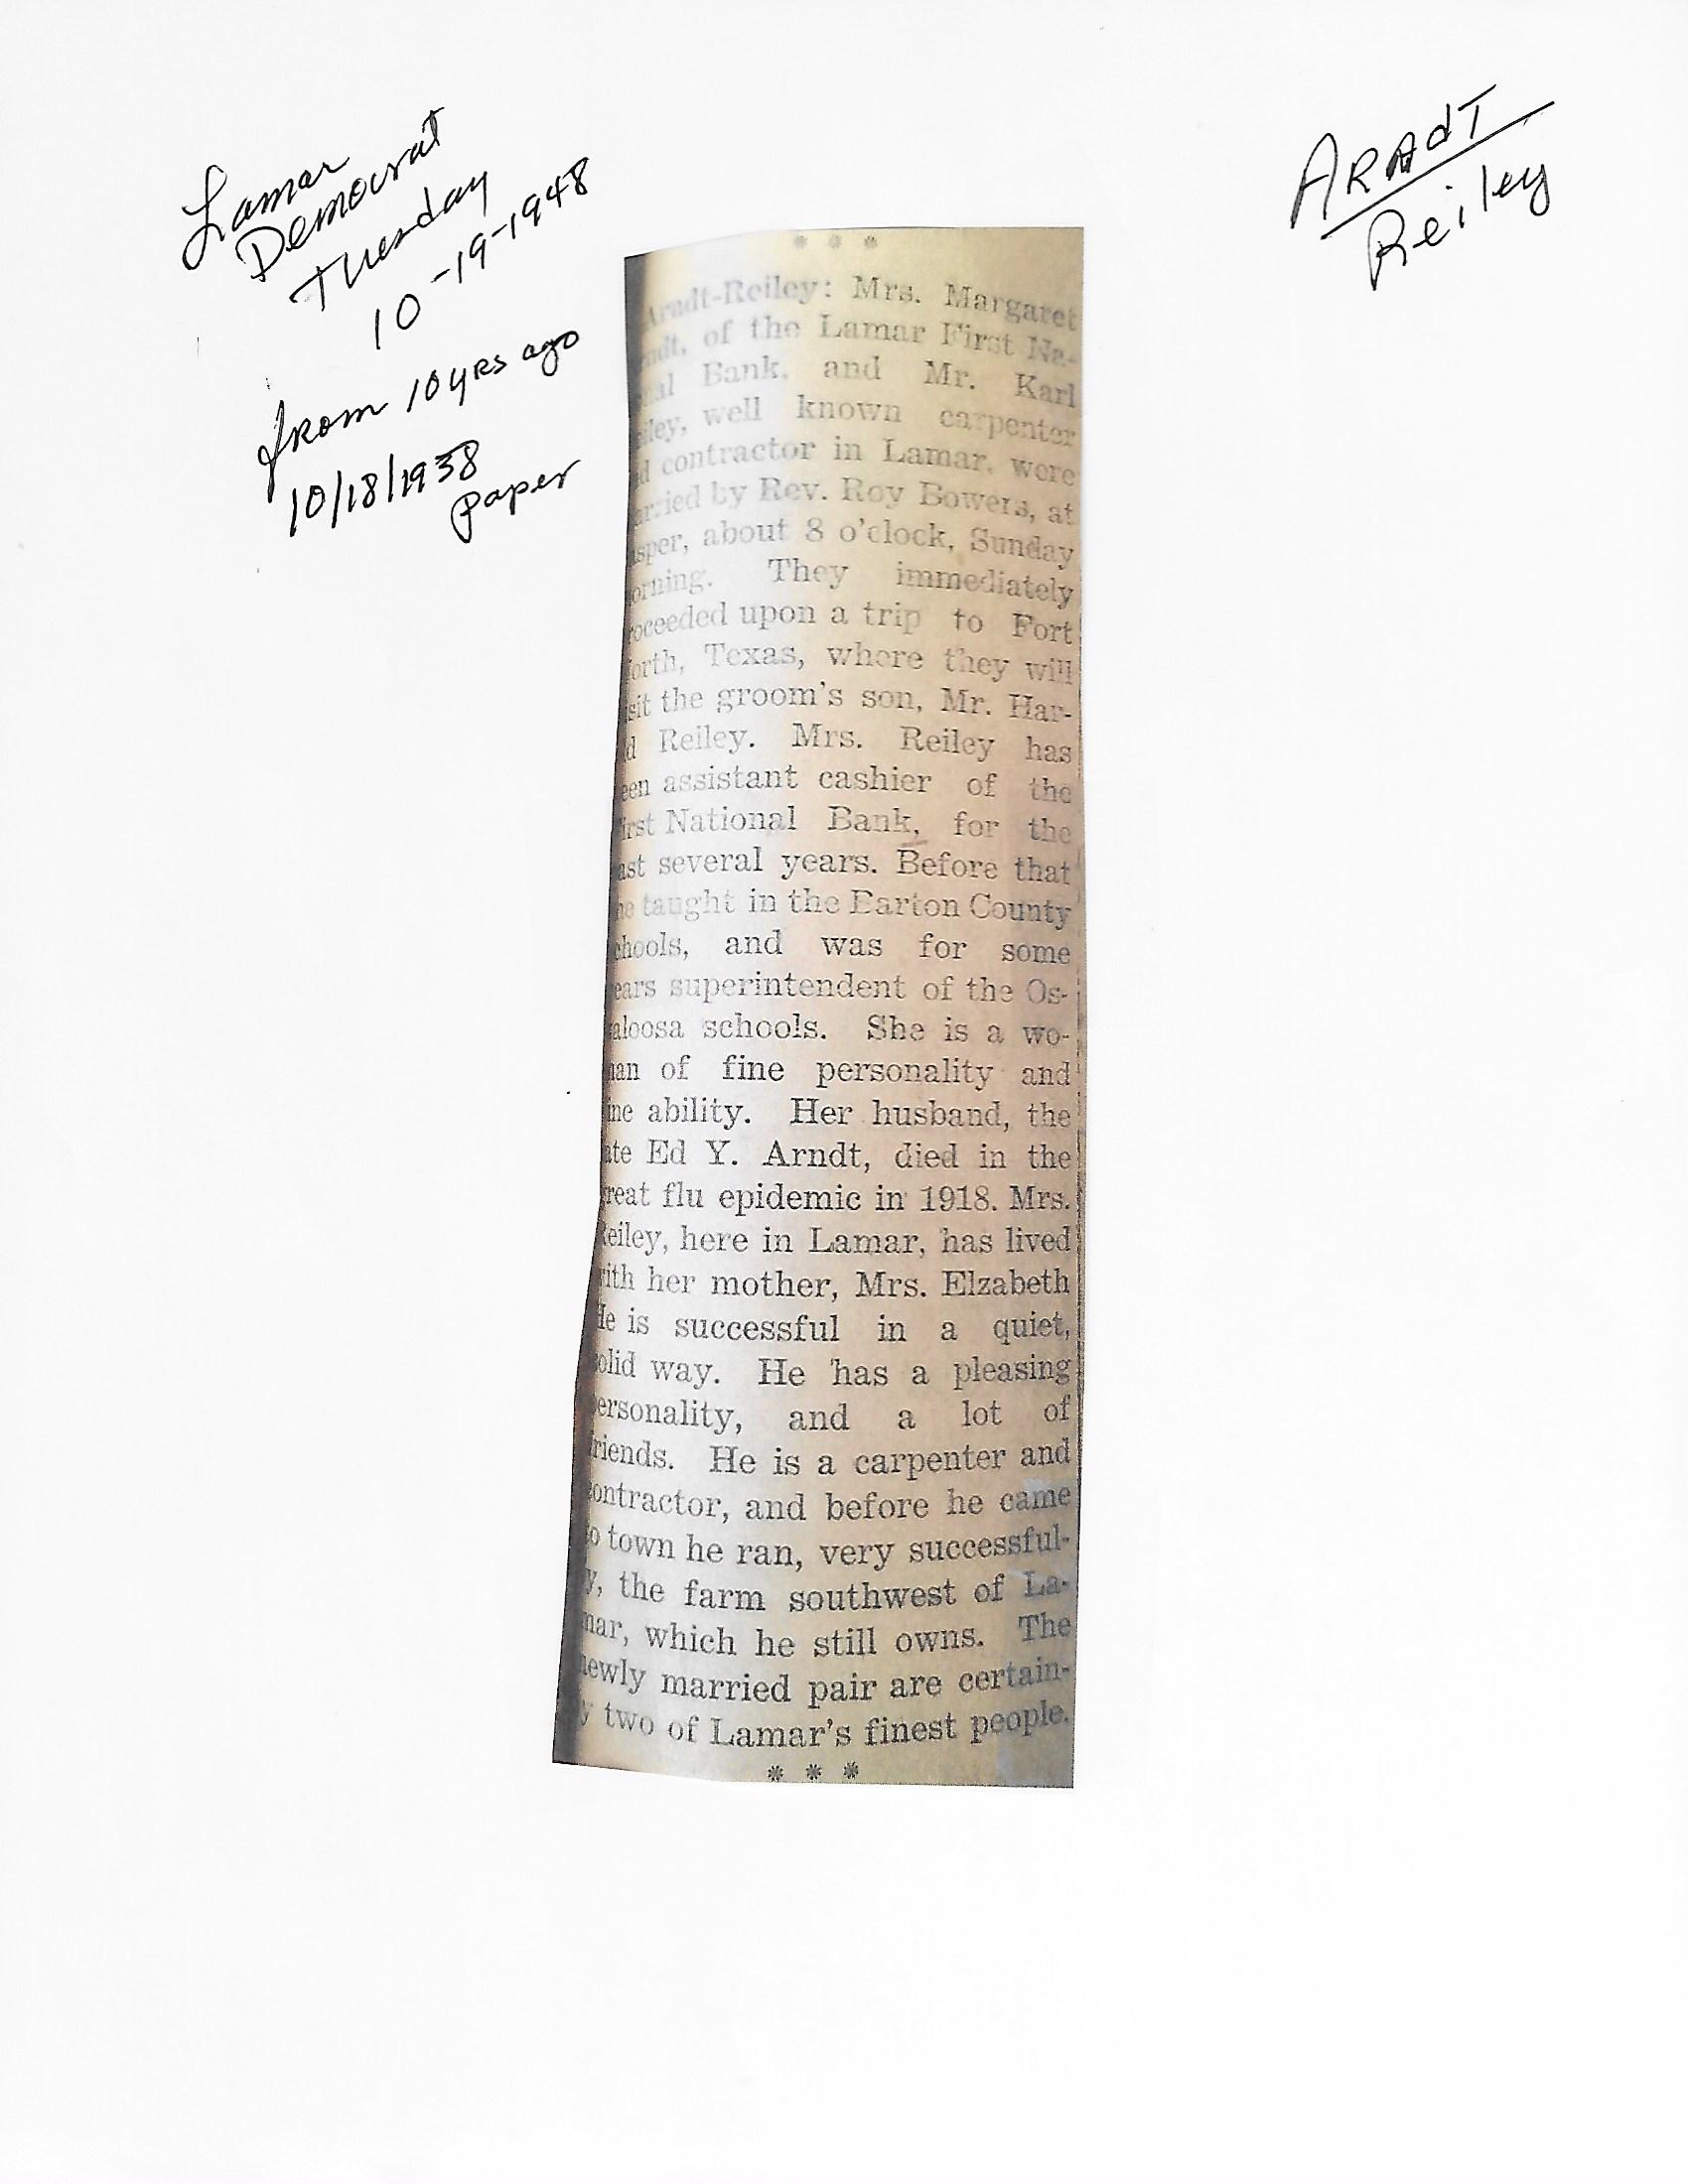 Lamar
Democrat
Tuesday
10-19-1948
from 10 yrs ago
10/18/1938
paper
ARAdT
Reiley
* * *
Arndt-Reiley: Mrs. Margaret
rndt, of the Lamar First Na-
nal Bank, and Mr. Karl
eiley, well known carpenter
d contractor in Lamar, were
arried by Rev. Roy Bowers, at
asper, about 8 o'clock, Sunday
orning. They immediately
roceeded upon a trip to Fort
orth, Texas, where they will
sit the groom's son, Mr. Har-
d Reiley. Mrs. Reiley has
een assistant cashier of the
irst National Bank, for the
ast several years. Before that
he taught in the Barton County
chools, and was for some
ears superintendent of the Os-
aloosa schools. She is a wo-
man of fine personality and
ine ability. Her husband, the
ate Ed Y. Arndt, died in the
reat flu epidemic in 1918. Mrs.
Reiley, here in Lamar, has lived
with her mother, Mrs. Elzabeth
He is successful in a quiet,
solid way. He has a pleasing
personality, and a lot of
friends. He is a carpenter and
contractor, and before he came
to town he ran, very successful-
y, the farm southwest of La-
mar, which he still owns. The
newly married pair are certain-
y two of Lamar's finest people.
* * *